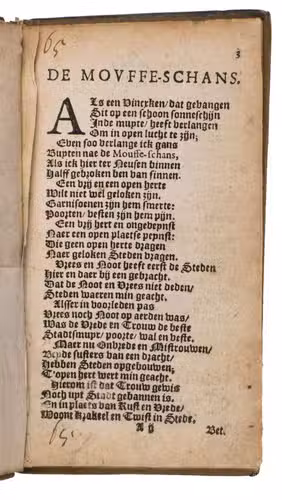 65
3
DE MOVFFE-SCHANS.
ALs een Vincxken/ dat gevangen
Sit op een schoon sonneschijn
Inde muyte/ heeft verlangen
Om in open lucht te zijn;
Even soo verlange ick gans
Buyten nae de Mouffe-schans,
Als ick hier ter Neusen binnen
Halff gebroken ben van sinnen.
Een vrij en een open herte
Wilt niet wel geloken zijn.
Garnisoenen zijn hem smerte:
Poorten/ vesten zijn hem pijn.
Een vrij hert en ongeveynst
Naer een open plaetse peynst:
Die geen open herte dragen
Naer geloken Steden vragen.
Vrees en Noot heeft eerst de Steden
Hier en daer bij een gebracht.
Dat de Noot en Vrees niet deden/
Steden waeren min geacht.
Alsser in voorleden pas
Vrees noch Noot op aerden was/
Was de Vrede en Trouw de beste
Stadtsmuyr/ poorte/ wal en veste.
Maer nu Onvrede en Mistrouwen/
Beyde susters van een dracht/
Hebben Steden opgebouwen;
T'open hert wert min geacht.
Hierom is dat Trouw gewis
Noch uyt Stadt gebannen is.
En in plaets van Rust en Vrede/
Woont Krakeel en Twist in Stede.
A ij
Bet.
65.